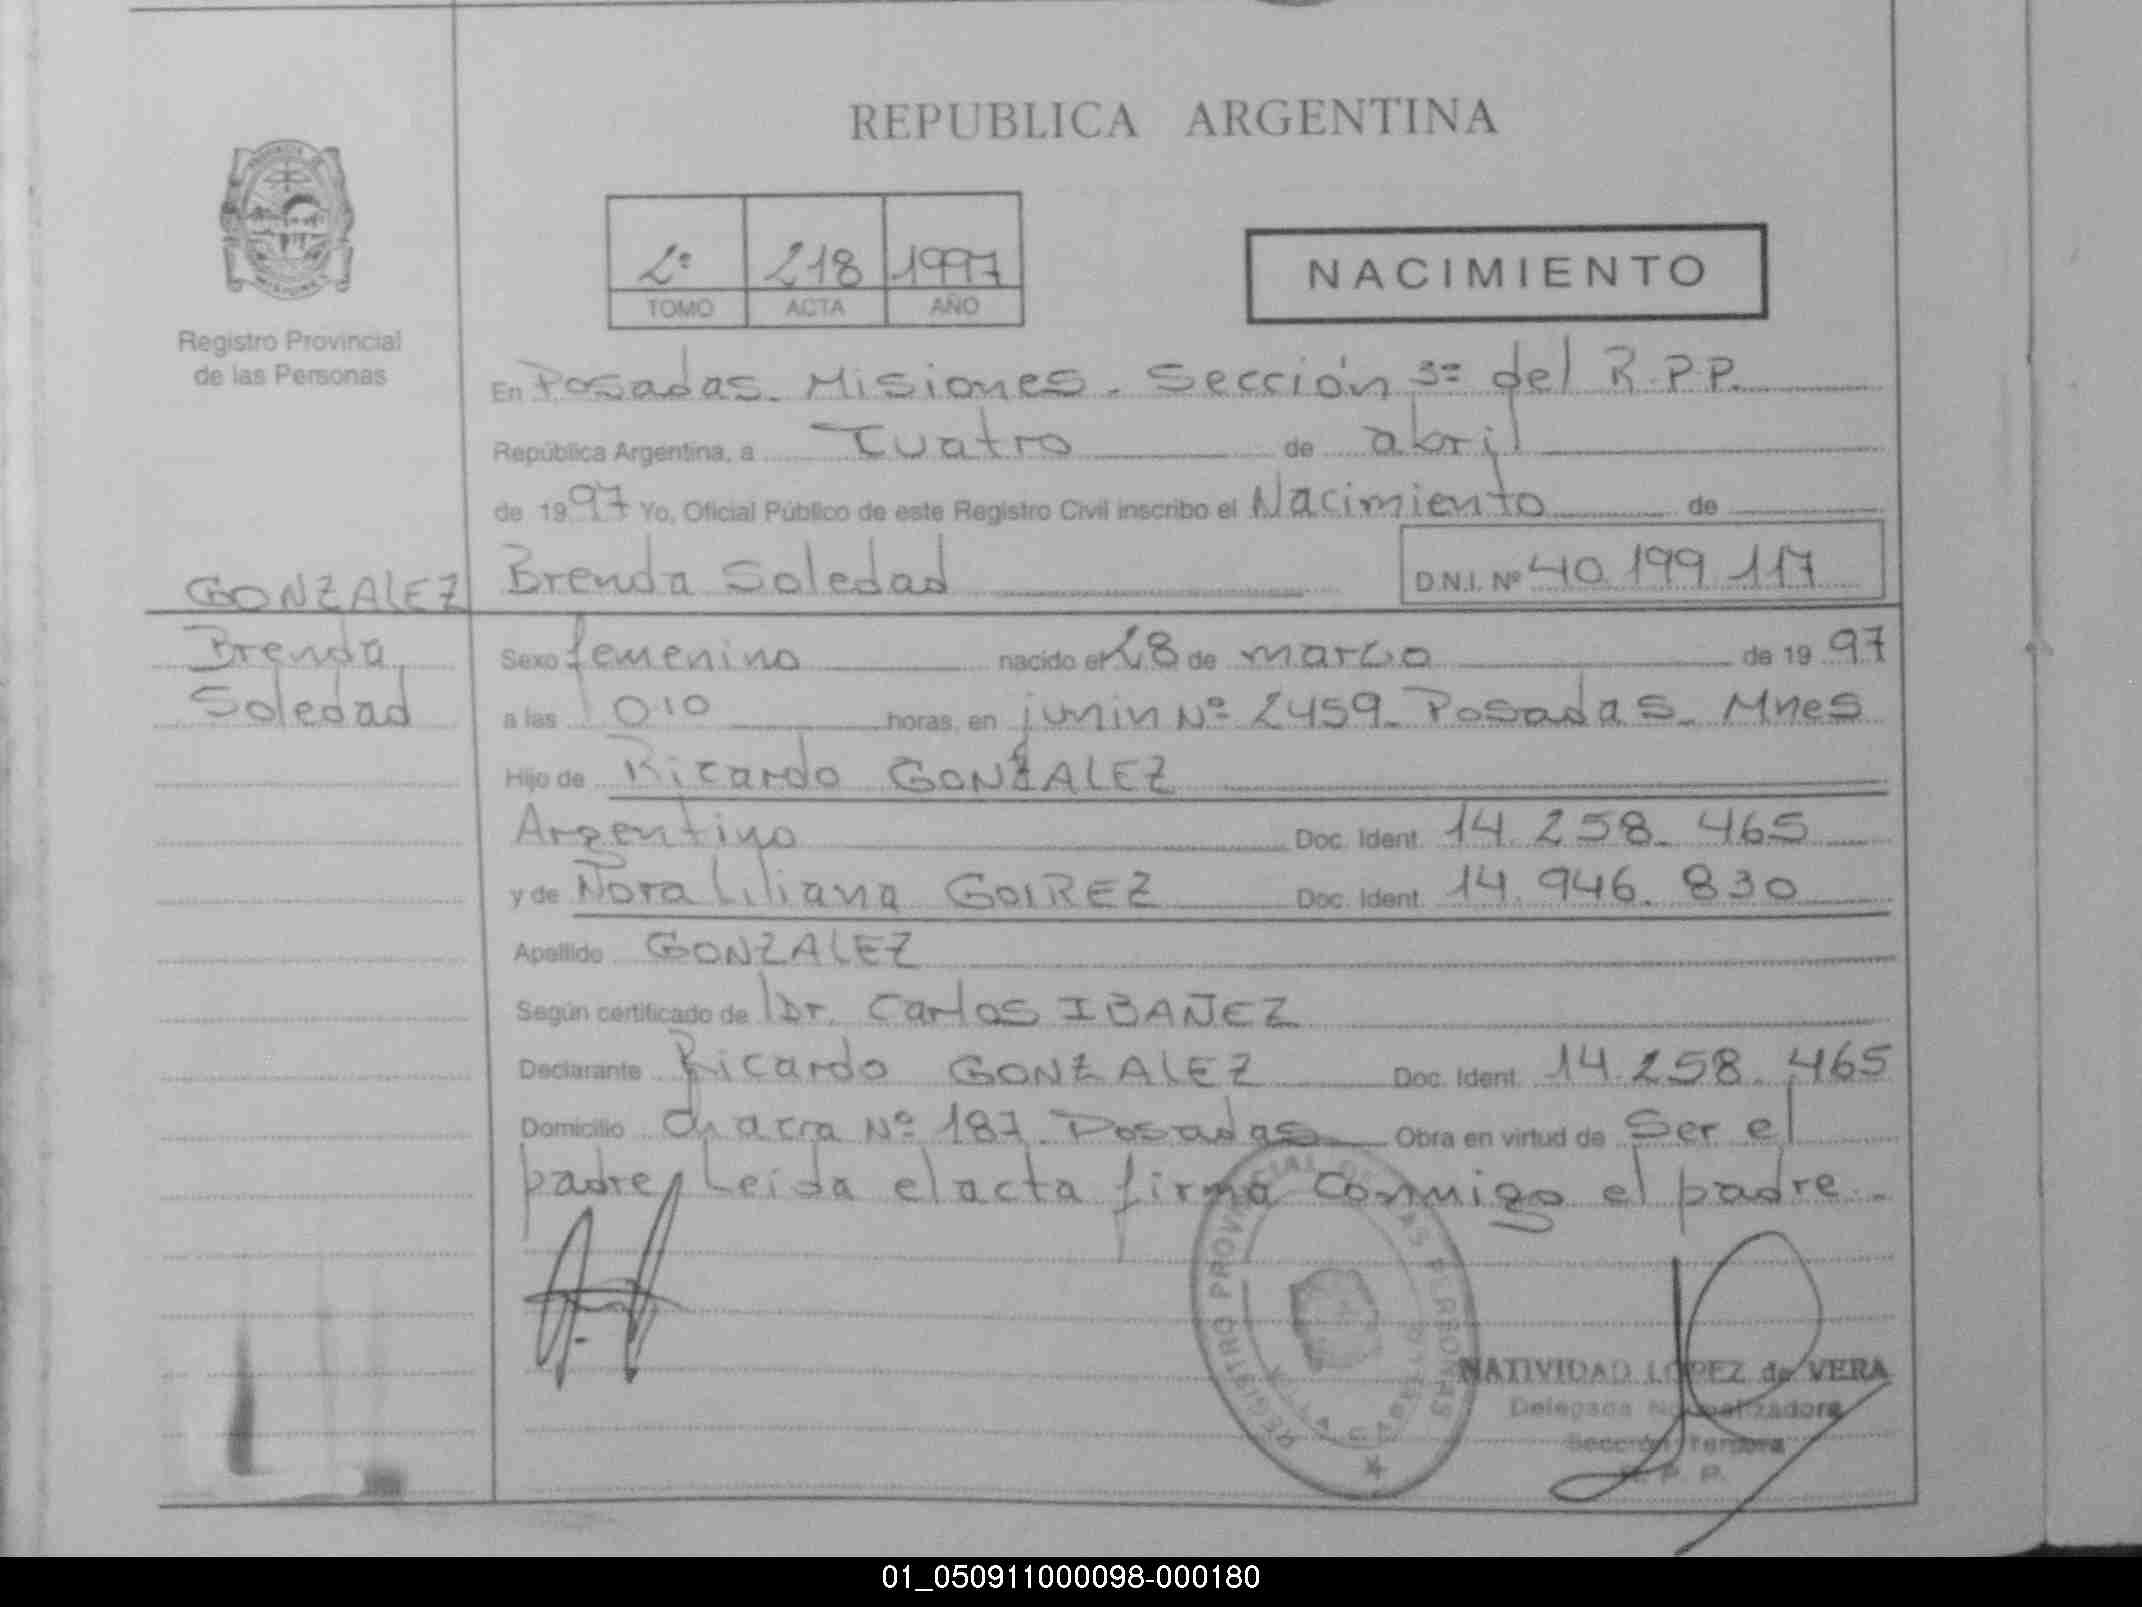 REPUBLICA ARGENTINA
2º 218 1997
TOMO ACTA AÑO
NACIMIENTO
Registro Provincial
de las Personas
En Posadas. Misiones. Sección 3ª del R.P.P.
República Argentina, a Cuatro de abril
de 1997 Yo, Oficial Público de este Registro Civil inscribo el Nacimiento de
GONZALEZ Brenda Soledad D.N.I. Nº 40.199.117
Brenda
Soledad
Sexo femenino nacido el 28 de marzo de 1997
a las 0,10 horas, en junin Nº 2459. Posadas. Mnes
Hijo de Ricardo GONZALEZ
Argentino Doc. Ident. 14.258.465
y de Nora Liliana GOIREZ Doc. Ident. 14.946.830
Apellido GONZALEZ
Según certificado de Dr. Carlos IBAÑEZ
Declarante Ricardo GONZALEZ Doc. Ident. 14.258.465
Domicilio Chacra Nº 187. Posadas Obra en virtud de Ser el
padre, Leida el acta firma conmigo el padre.
REGISTRO PROVINCIAL DE LAS PERSONAS
NATIVIDAD LOPEZ de VERA
Delegada Normalizadora
Sección Tercera
R. P. P.
01_050911000098-000180